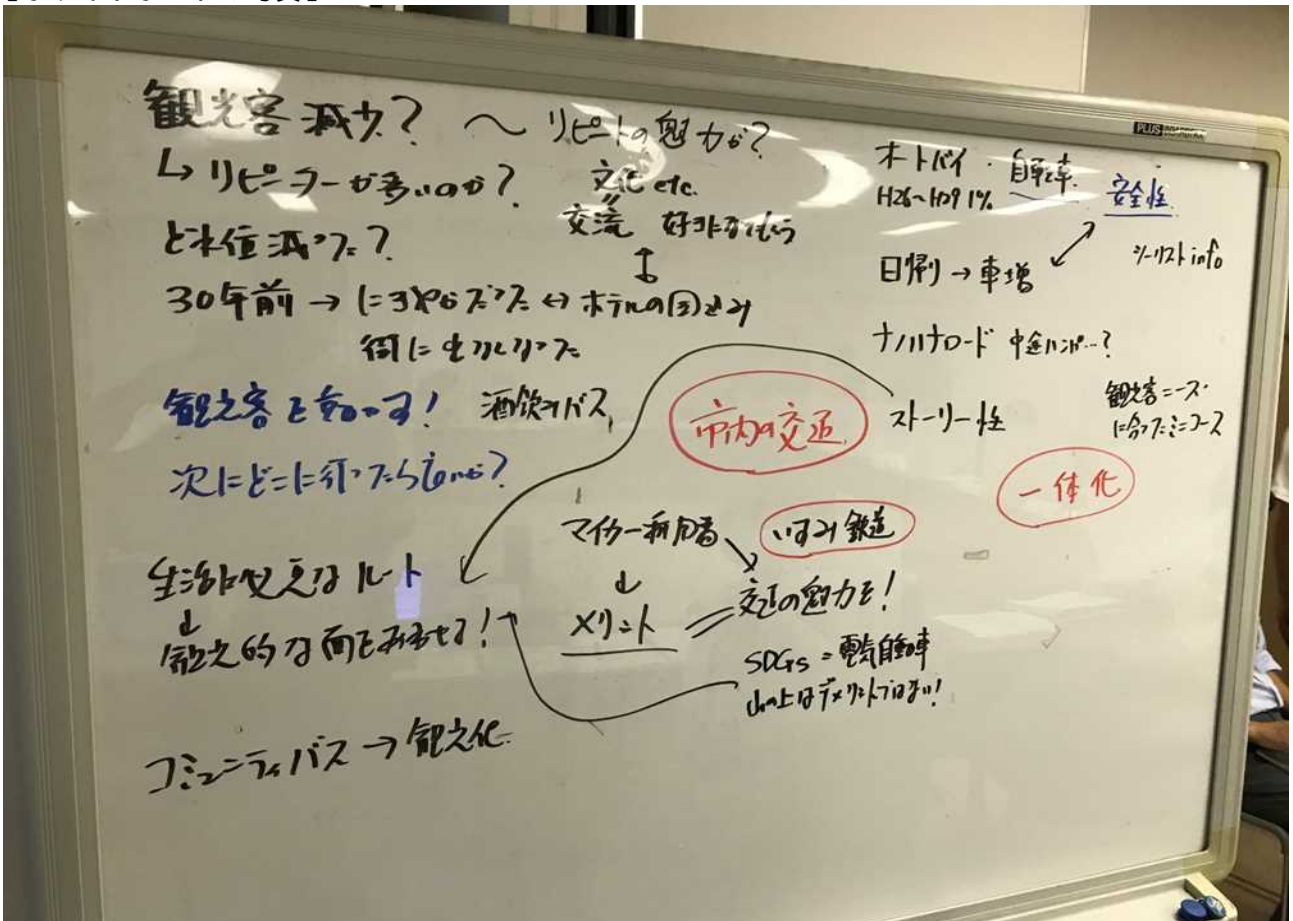 観光客減少? ～ リピートの魅力が?
↳ リピーターが多いのか?
文化 etc.
交流
どれ位減った?
30年前 → にぎやかだった ↔ ホテルの囲い込み
街に出なくなった
観光客を動かす! 酒飲みバス
次にどこに行ったら良いか?
生活に必要なルート
↓
観光的な面をあわせる!
コミュニティバス → 観光化
市内の交通
マイカー利用者
↓
メリット
いすみ鉄道
交通の魅力を!
SDGs = 電気自動車
山の上はデメリットではない!
オートバイ・自転車
H26～H29 1%
安全性
ツーリスト info
日帰り → 車増
ナノハナロード 中途ハンパ…?
ストーリー性
観光客ニーズ
に合ったミニコース
一体化
PLUS